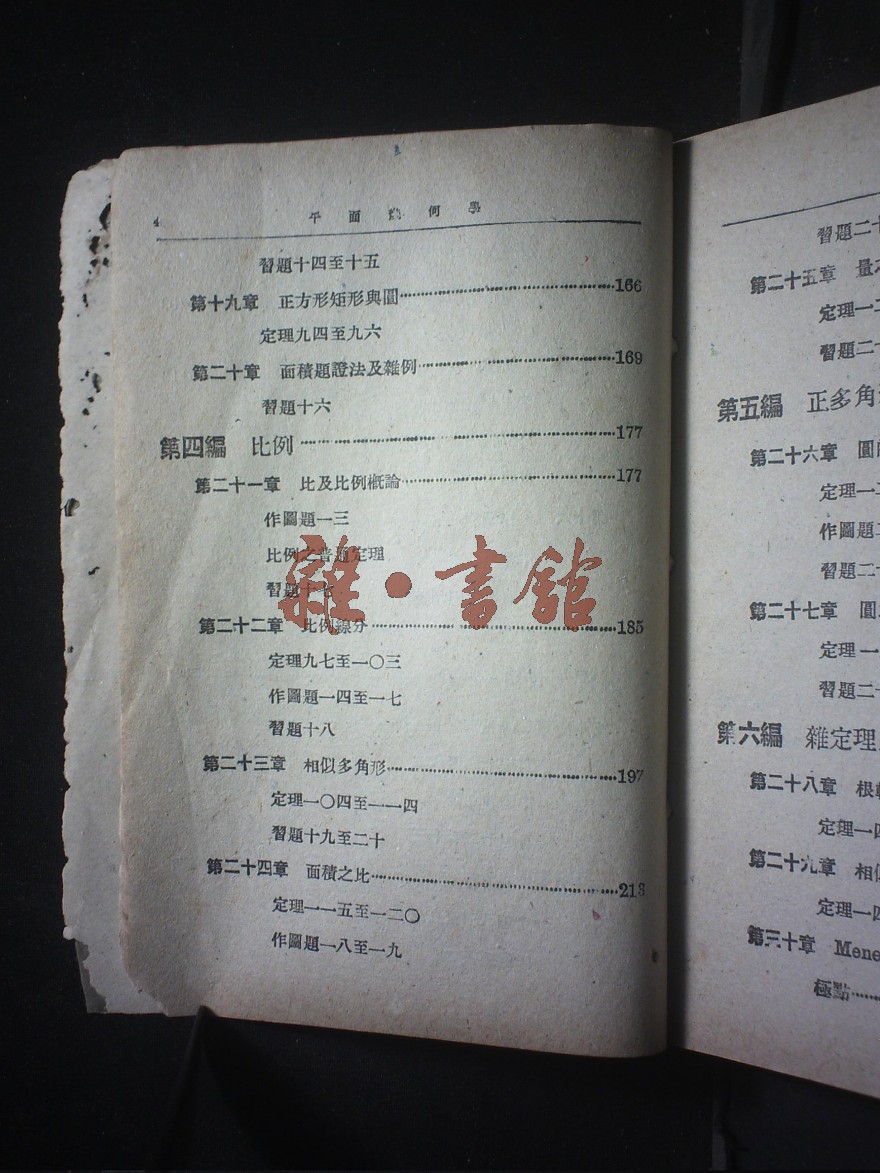 4 平面幾何學
習題十四至十五
第十九章 正方形矩形與圓……166
定理九四至九六
第二十章 面積題證法及雜例……169
習題十六
第四編 比例……177
第二十一章 比及比例概論……177
作圖題一三
比例之普通定理
習題十七
第二十二章 比例線分……185
定理九七至一〇三
作圖題一四至一七
習題十八
第二十三章 相似多角形……197
定理一〇四至一一四
習題十九至二十
第二十四章 面積之比……213
定理一一五至一二〇
作圖題一八至一九
雜·書館
習題二十
第二十五章 量
定理一二
習題二十
第五編 正多角
第二十六章 圓
定理一
作圖題二
習題二十
第二十七章 圓
定理一
習題二十
第六編 雜定理
第二十八章 根
定理一四
第二十九章 相似
定理一四
第三十章 Mene
極點……